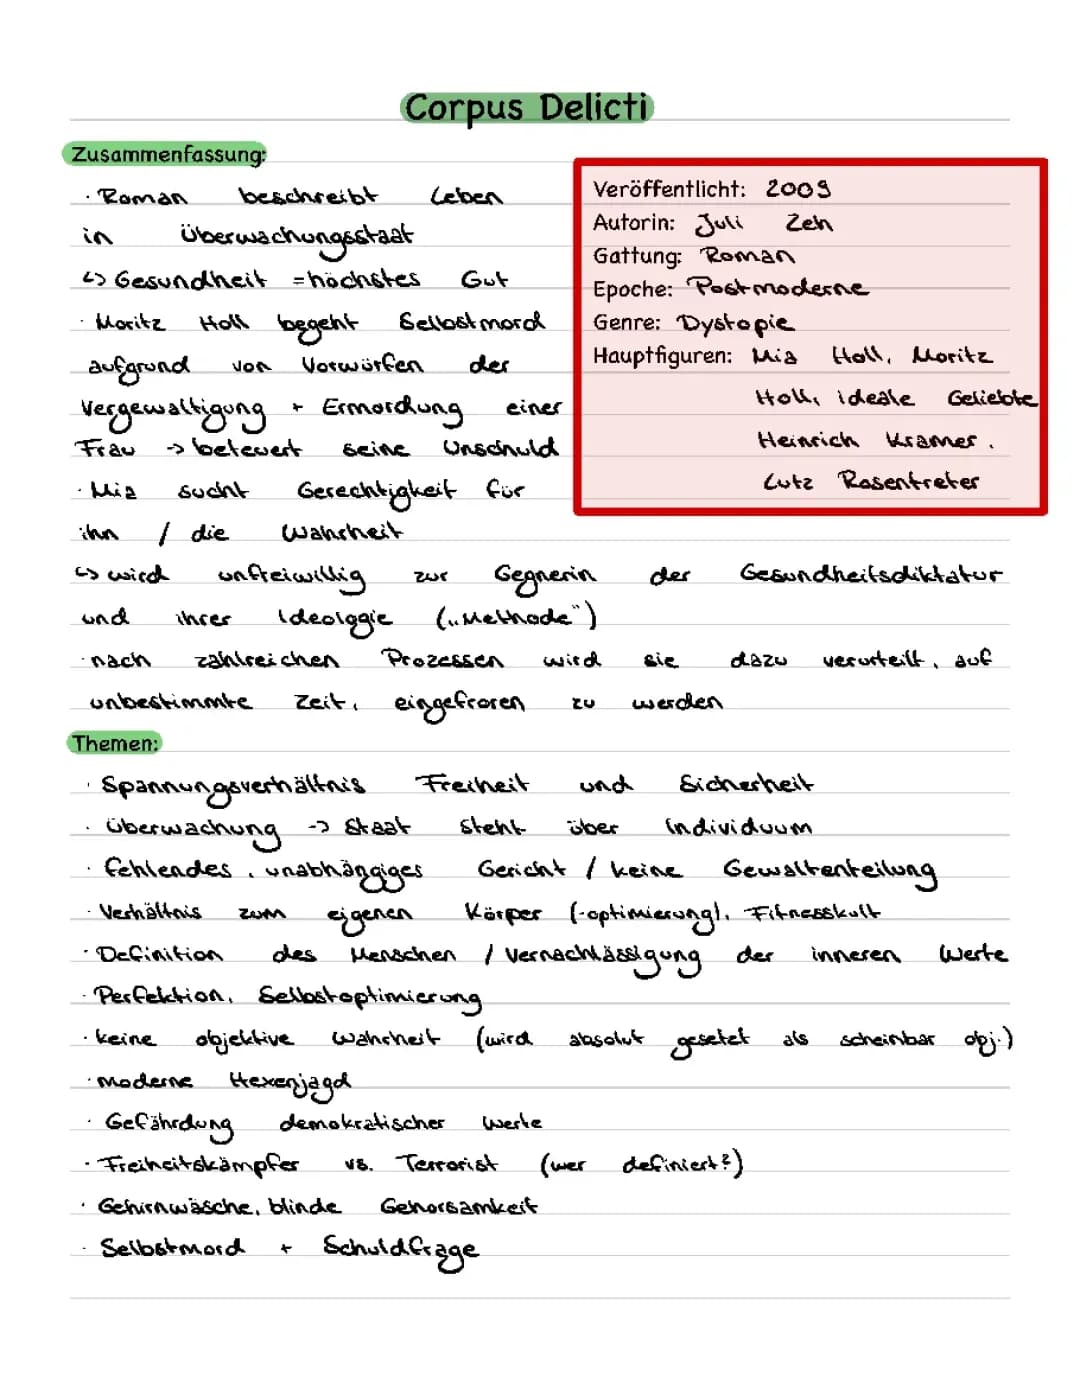 Corpus Delicti
Zusammenfassung:
· Roman beschreibt Leben
in Überwachungsstaat
↳ Gesundheit = höchstes Gut
· Moritz Holl begeht Selbstmord
aufgrund von Vorwürfen der
Vergewaltigung + Ermordung einer
Frau -> beteuert seine Unschuld
· Mia sucht Gerechtigkeit für
ihn / die Wahrheit
↳ wird unfreiwillig zur Gegnerin der Gesundheitsdiktatur
und ihrer Ideologie („Methode")
· nach zahlreichen Prozessen wird sie dazu verurteilt, auf
unbestimmte Zeit, eingefroren zu werden
Veröffentlicht: 2009
Autorin: Juli Zeh
Gattung: Roman
Epoche: Postmoderne
Genre: Dystopie
Hauptfiguren: Mia Holl, Moritz
Holl, ideale Geliebte
Heinrich Kramer,
Lutz Rosentreter
Themen:
· Spannungsverhältnis Freiheit und Sicherheit
· Überwachung -> Staat steht über Individuum
· fehlendes, unabhängiges Gericht / keine Gewaltenteilung
· Verhältnis zum eigenen Körper (-optimierung), Fitnesskult
· Definition des Menschen / Vernachlässigung der inneren Werte
· Perfektion, Selbstoptimierung
· keine objektive Wahrheit (wird absolut gesetzt als scheinbar obj.)
· moderne Hexenjagd
· Gefährdung demokratischer Werte
· Freiheitskämpfer vs. Terrorist (wer definiert?)
· Gehirnwäsche, blinde Gehorsamkeit
· Selbstmord + Schuldfrage